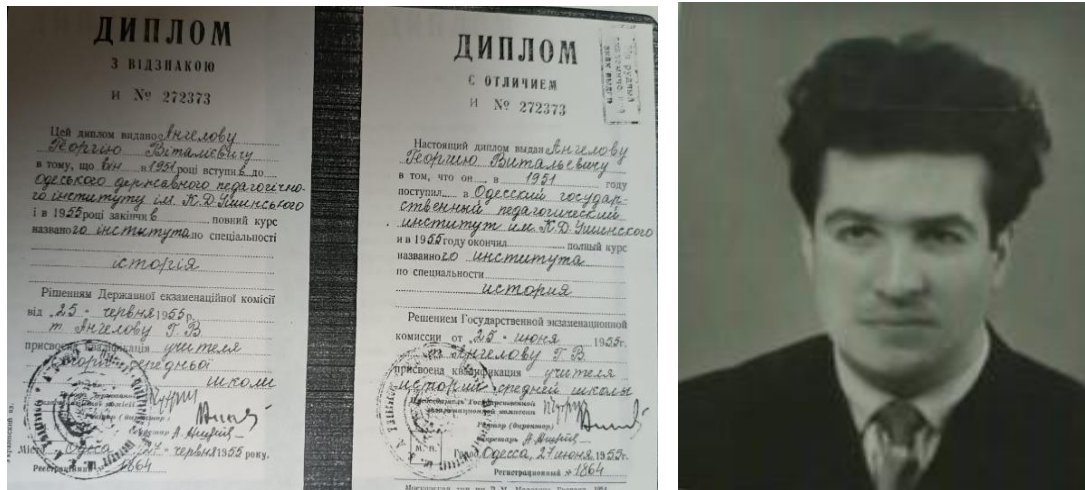 ДИПЛОМ
З ВІДЗНАКОЮ
И № 272373
Цей диплом видано Ангелову
Георгію Віталієвичу
в тому, що він в 1951 році вступив до
Одеського державного педагогічно-
го інституту ім. К.Д.Ушинського
і в 1955 році закінчив повний курс
названого інституту по спеціальності
історія
Рішенням Державної екзаменаційної комісії
від 25 червня 1955 р.
т. Ангелову Г. В
присвоєна кваліфікація учителя
історії середньої
школи
Одесса, 27 червня 1955 року.
1864
ДИПЛОМ
С ОТЛИЧИЕМ
И № 272373
Настоящий диплом выдан Ангелову
Георгию Витальевичу
в том, что он в 1951 году
поступил в Одесский государ-
ственный педагогический
институт им. К.Д.Ушинского
и в 1955 году окончил полный курс
названного института
по специальности
история
Решением Государственной экзаменационной
комиссии от 25 июня 1955г.
т. Ангелову Г. В.
присвоена квалификация учителя
истории средней школы
Председатель Государственной
экзаменационной комиссии
Ректор (директор)
Секретарь
М. П.
Город Одесса, 27 июня 1955г.
Регистрационный № 1864